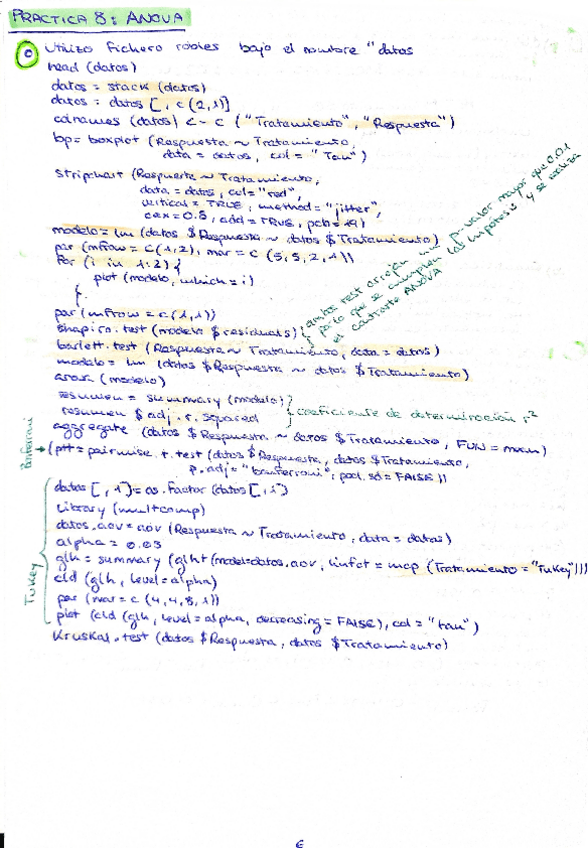 PRACTICA 8: ANOVA
Utilizo fichero robles bajo el nombre "datos
head (datos)
datos = stack (datos)
datos = datos [, c(2,1)]
colnames (datos) <- c ("Tratamiento", "Respuesta")
bp= boxplot (Respuesta ~ Tratamiento,
data = datos, col = "Tan")
Stripchart (Respuesta ~ Tratamiento,
data = datos, col="red",
vertical = TRUE, method = "jitter",
cex = 0.8, add = TRUE, pch = 19)
modelo = lm (datos $ Respuesta ~ datos $ Tratamiento)
par (mfrow = c(1,2), mar = c (5,5,2,1))
for (i in 1:2) {
plot (modelo, which = i)
}
par (mfrow = c(1,1))
shapiro.test (modelo $ residuals)
barlett.test (Respuesta ~ Tratamiento, data = datos)
ambos test arrojan un p-valor mayor que 0.01
por lo que se cumplen las hipótesis y se realiza
el contraste ANOVA
modelo = lm (datos $ Respuesta ~ datos $ Tratamiento)
anova (modelo)
resumen = summary (modelo)
resumen $ adj.r.squared
coeficiente de determinación r²
aggregate (datos $ Respuesta ~ datos $ Tratamiento, FUN = mean)
Bonferroni
(ptt = pairwise.t.test (datos $ Respuesta, datos $ Tratamiento,
p.adj = "bonferroni", pool.sd = FALSE))
Tukey
datos [,1] = as.factor (datos [,1])
library (multcomp)
datos.aov = aov (Respuesta ~ Tratamiento, data = datos)
alpha = 0.05
glh = summary (glht (model=datos.aov, linfct = mcp (Tratamiento = "Tukey")))
cld (glh, level = alpha)
par (mar = c (4,4,8,1))
plot (cld (glh, level = alpha, decreasing = FALSE), col = "tan")
Kruskal.test (datos $ Respuesta, datos $ Tratamiento)